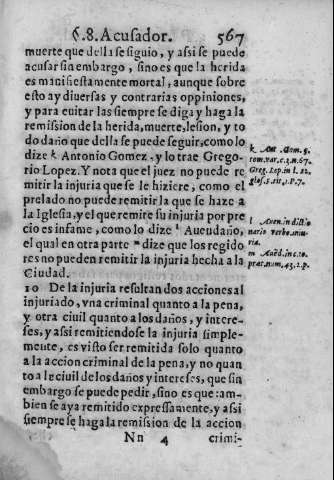 §.8. Acusador. 567
muerte que della se siguio, y assi se puede
acusar sin embargo, sino es que la herida
es manifiestamente mortal, aunque sobre
esto ay diuersas y contrarias oppiniones,
y para euitar las siempre se diga y haga la
remission de la herida, muerte, lesion, y to
do daño que della se puede seguir, como lo
dize k Antonio Gomez, y lo trae Grego-
rio Lopez. Y nota que el juez no puede re
mitir la injuria que se le hiziere, como el
prelado no puede remitir la que se haze a
la Iglesia, y el que remire su injuria por pre
cio es infame, como lo dize l Auendaño,
el qual en otra parte m dize que los regido
res no pueden remitir la injuria hecha a la
Ciudad.
10 De la injuria resultan dos acciones al
injuriado, vna criminal quanto a la pena,
y otra ciuil quanto a los daños, y interes-
ses, y assi remitiendose la injuria simple-
mente, es visto ser remitida solo quanto
a la accion criminal de la pena, y no quan
to a le ciuil de los daños y interesses, que sin
embargo se puede pedir, sino es que tam-
bien se aya remitido expressamente, y assi
siempre se haga la remission de la accion
Nn 4 crimi-
k Ant. Gom. 3.
tom. var. c. 3. n. 67.
Greg. Lop. in l. 22.
glos. 5. tit. 1. P. 7.
l Auen. in dictio
nario verbo inu-
ria.
m Aued. in c. to.
præt. num. 43. 2. p.